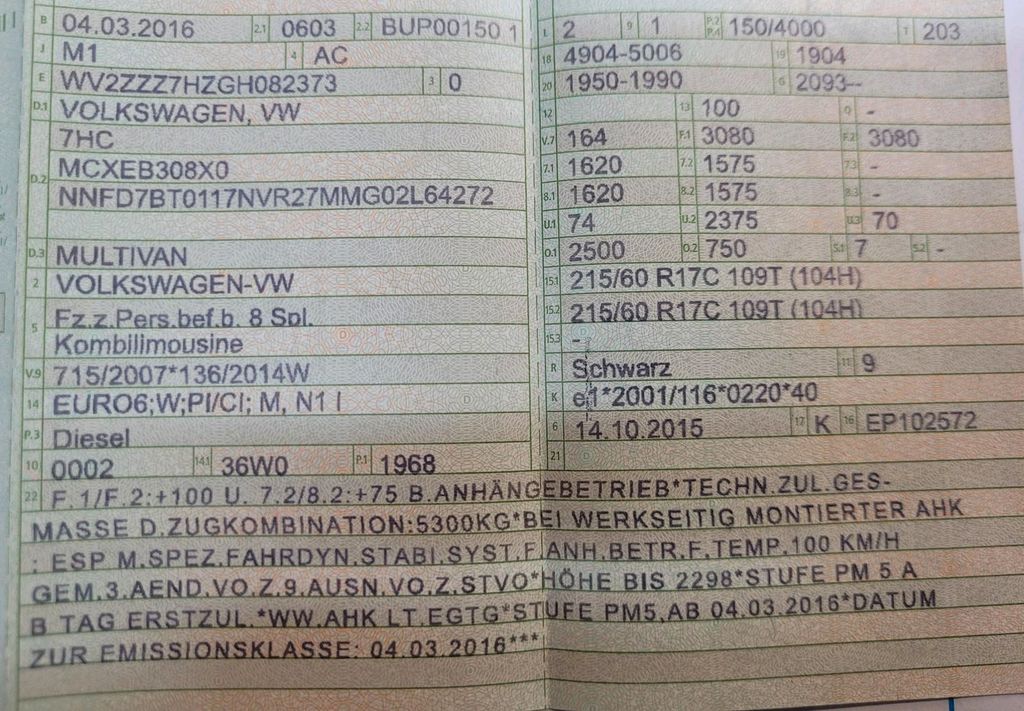 B 04.03.2016 2.1 0603 2.2 BUP00150 1
J M1 4 AC
E WV2ZZZ7HZGH082373 3 0
D.1 VOLKSWAGEN, VW
7HC
D.2 MCXEB308X0
NNFD7BT0117NVR27MMG02L64272
D.3 MULTIVAN
2 VOLKSWAGEN-VW
5 Fz.z.Pers.bef.b. 8 Spl.
Kombilimousine
V.9 715/2007*136/2014W
14 EURO6;W;PI/CI; M, N1 I
P.3 Diesel
10 0002 14.1 36W0 P.1 1968
L 2 9 1 P.2 P.4 150/4000 T 203
18 4904-5006 19 1904
20 1950-1990 G 2093--
12 13 100 Q -
V.7 164 F.1 3080 F.2 3080
7.1 1620 7.2 1575 7.3 -
8.1 1620 8.2 1575 8.3 -
U.1 74 U.2 2375 U.3 70
O.1 2500 O.2 750 S.1 7 S.2 -
15.1 215/60 R17C 109T (104H)
15.2 215/60 R17C 109T (104H)
15.3 -
R Schwarz 11 9
K e1*2001/116*0220*40
6 14.10.2015 17 K 16 EP102572
21
22 F.1/F.2:+100 U. 7.2/8.2:+75 B.ANHÄNGEBETRIEB*TECHN.ZUL.GES-
MASSE D.ZUGKOMBINATION:5300KG*BEI WERKSEITIG MONTIERTER AHK
: ESP M.SPEZ.FAHRDYN.STABI.SYST.F.ANH.BETR.F.TEMP.100 KM/H
GEM.3.AEND.VO.Z.9.AUSN.VO.Z.STVO*HÖHE BIS 2298*STUFE PM 5 A
B TAG ERSTZUL.*WW.AHK LT.EGTG*STUFE PM5,AB 04.03.2016*DATUM
ZUR EMISSIONSKLASSE: 04.03.2016***